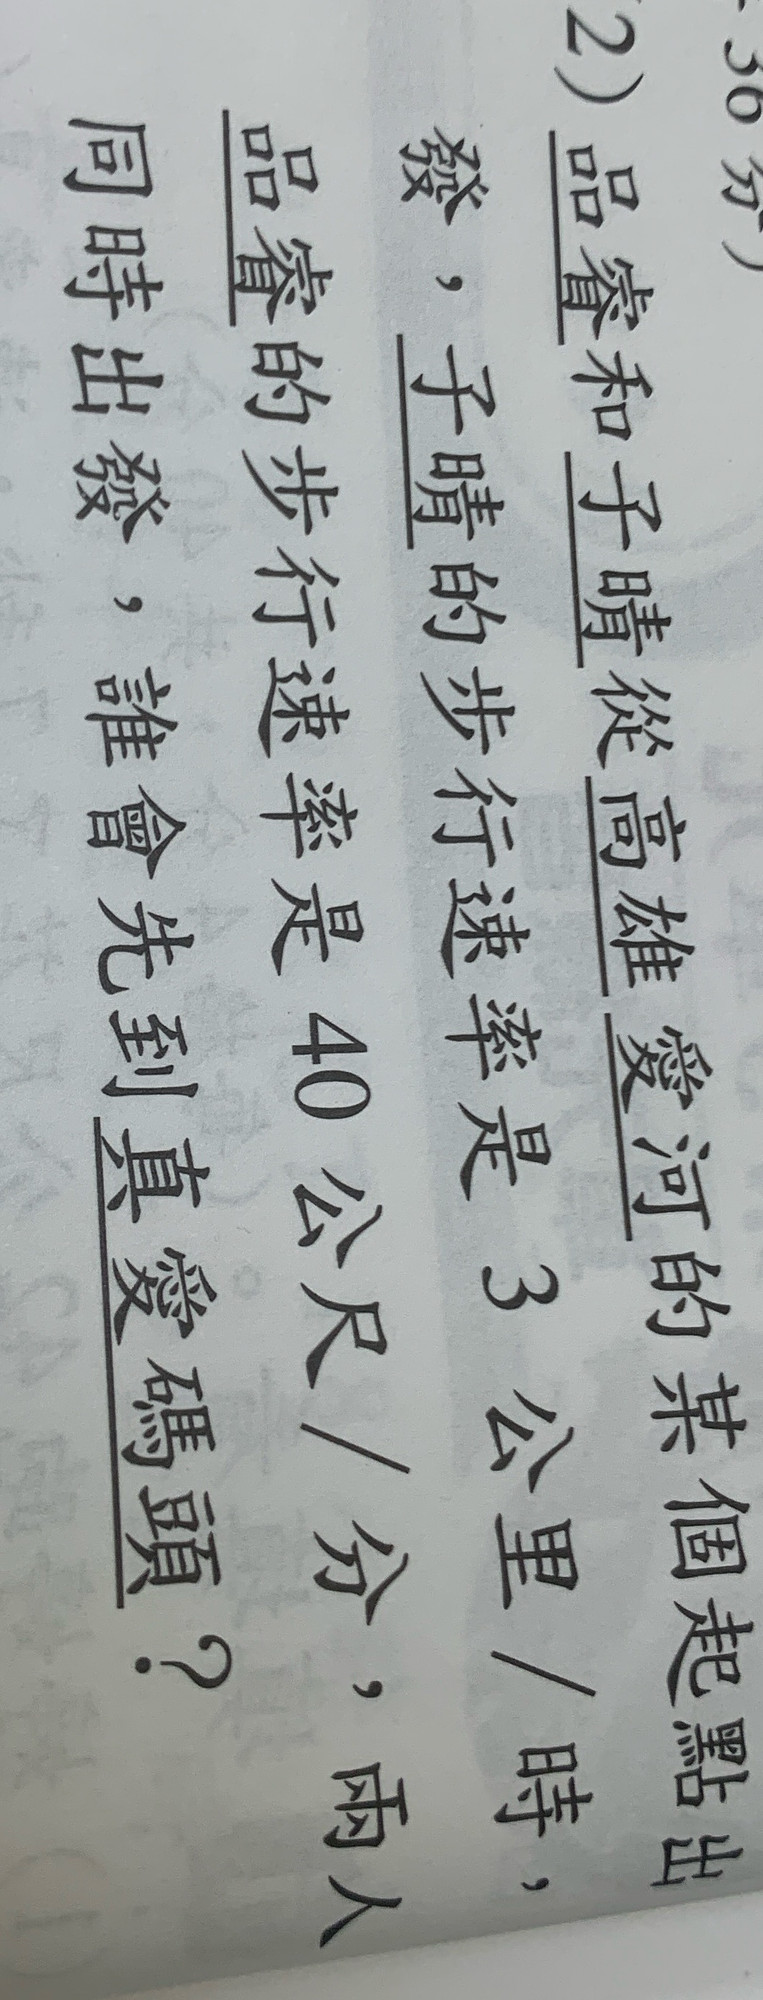 36 分）
2）品睿和子晴從高雄愛河的某個起點出
發，子晴的步行速率是 3 公里/時，
品睿的步行速率是 40 公尺/分，兩人
同時出發，誰會先到真愛碼頭？